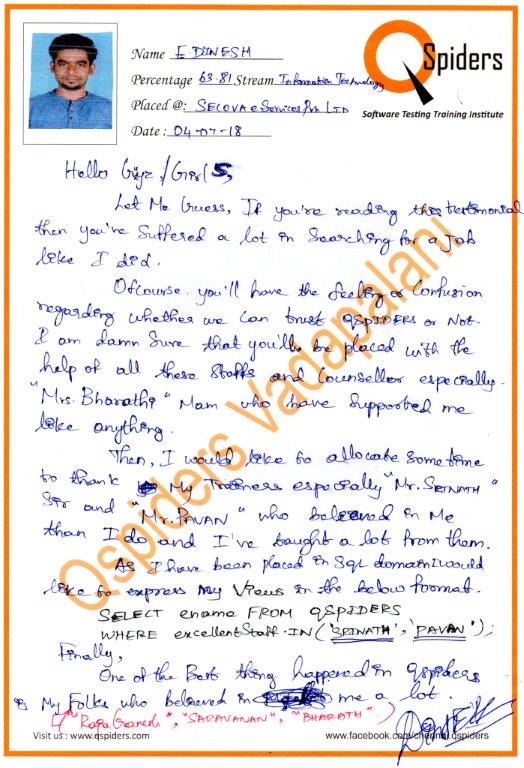 QSpiders
Software Testing Training Institute
Name E. DINESH
Percentage 63.81 Stream Information Technology
Placed @: SECOVA eServices Pvt LTD
Date : 04-07-18
Hello Guyz /Girls,
Let Me Guess, If you're reading this testimonial
then you've Suffered a lot in Searching for a Job
like I did.
Ofcourse you'll have the feeling or Confusion
regarding whether we can trust QSPIDERS or Not.
I am damn Sure that you'll be placed with the
help of all these Staffs and Counsellor especially
"Mrs. Bharathi" Mam who have Supported me
like anything.
Then, I would like to allocate some time
to thank My Trainers especially "Mr. SRINATH"
Sir and "Mr. PAVAN" who beleived in Me
than I do and I've taught a lot from them.
As I have been placed in Sql domain I would
like to express My Views in the below format.
SELECT ename FROM QSPIDERS
WHERE excellentStaff IN ('SRINATH', 'PAVAN');
Finally,
One of the Best thing happened in qspiders
is My Folks who beleived in me a lot.
["Raja Ganesh", "SARAVANAN", "BHARATH".]
Qspiders Vadapalani
Visit us : www.qspiders.com
www.facebook.com/chennai.qspiders